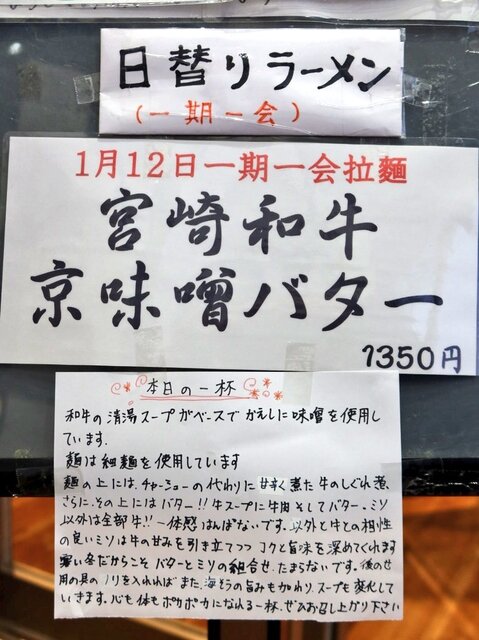 日替りラーメン
(一期一会)
1月12日一期一会拉麵
宮崎和牛
京味噌バター
1350円
本日の一杯
和牛の清湯スープがベースで かえしに味噌を使用し
ています。
麺は細麺を使用しています
麺の上には、チャーシューの代わりに 甘辛く煮た 牛のしぐれ煮
さらに、その上にはバター!! 牛スープに牛肉 そしてバター、ミソ
以外は全部牛!! 一体感はんぱないです。以外と牛との相性
の良いミソは牛の甘みを引き立てつつ コクと旨味を深めてくれます
寒い冬だからこそ バターとミソの組合せ、たまらないです。後のせ
用の具のノリを入れればまた、海そうの旨みも加わり、スープも変化して
いきます。心も体もポカポカになれる一杯、ぜひお召し上がり下さい